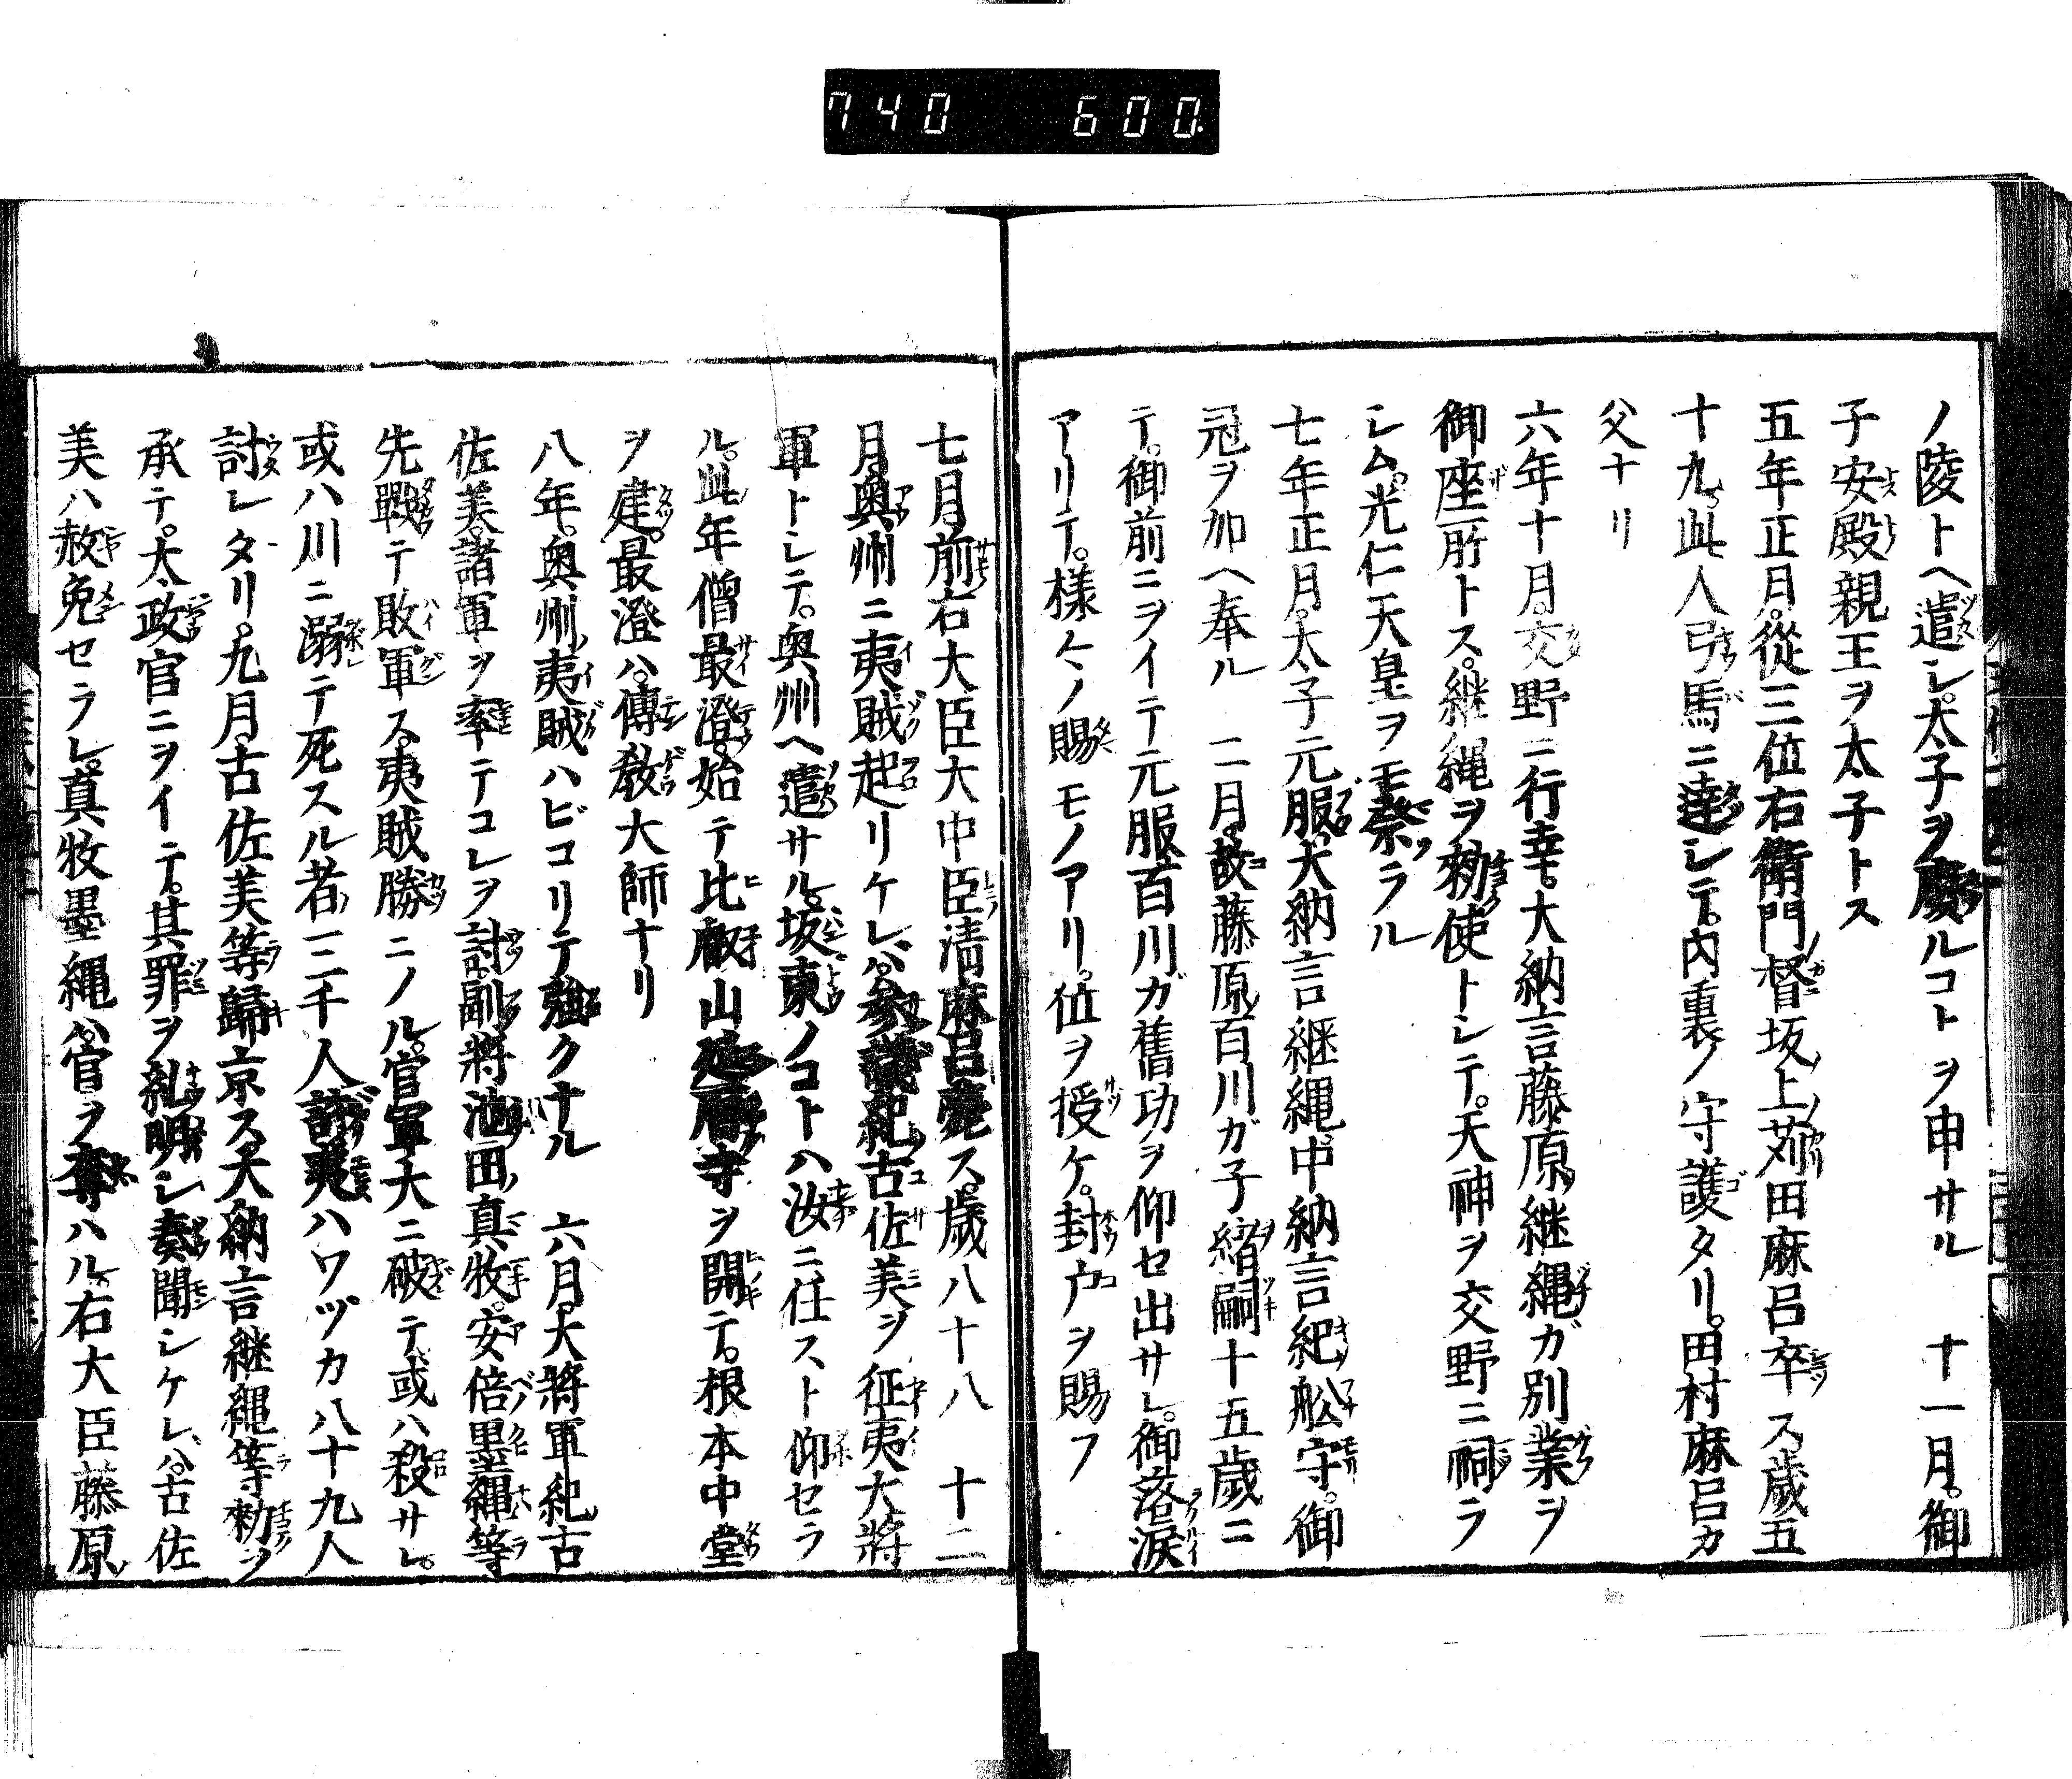 740 600.
ノ陵トヘ遣シ。太子ヲ廢ルコトヲ申サル 十一月。御
子安殿親王ヲ太子トス
五年正月。從三位右衛門督坂上苅田麻呂卒ス。歳五
十九。此人弓馬ニ達シテ。内裏ノ守護タリ。田村麻呂カ
父ナリ
六年十月。交野ニ行幸。大納言藤原継縄ガ別業ヲ
御座所トス。継縄ヲ勅使トシテ。天神ヲ交野ニ祠ラ
シム。光仁天皇ヲモ祭ラル
七年正月。太子元服。大納言継縄。中納言紀舩守。御
冠ヲ加ヘ奉ル 二月。故藤原百川ガ子緒嗣十五歳ニ
テ。御前ニヲイテ元服。百川ガ舊功ヲ仰セ出サレ。御落涙
アリテ。様々ノ賜モノアリ。位ヲ授ケ。封户ヲ賜フ
七月。前右大臣大中臣清麻呂薨ス。歳八十八 十二
月。奥州ニ夷賊起リケレバ。参議紀古佐美ヲ征夷大將
軍トシテ。奥州ヘ遣サル。坂東ノコトハ汝ニ仕スト仰セラ
ル。此年僧最澄。始テ比叡山延暦寺ヲ開テ。根本中堂
ヲ建。最澄ハ。傳教大師ナリ
八年。奥州ノ夷賊ハビコリテ強クナル 六月。大將軍紀古
佐美。諸軍ヲ率テコレヲ討。副將池田真牧。安倍墨縄等
先戰テ敗軍ス。夷賊勝ニノル。官軍大ニ破テ。或ハ殺サレ。
或ハ川ニ溺テ死スル者。一二千人。討夷ハワヅカ八十九人
討レタリ。九月。古佐美等歸京ス。大納言継縄等勅ヲ
承テ。太政官ニヲイテ。其罪ヲ糺明シ奏聞シケレバ。古佐
美ハ赦免セラレ。真牧墨縄ハ。官ヲ奪ハル。右大臣藤原